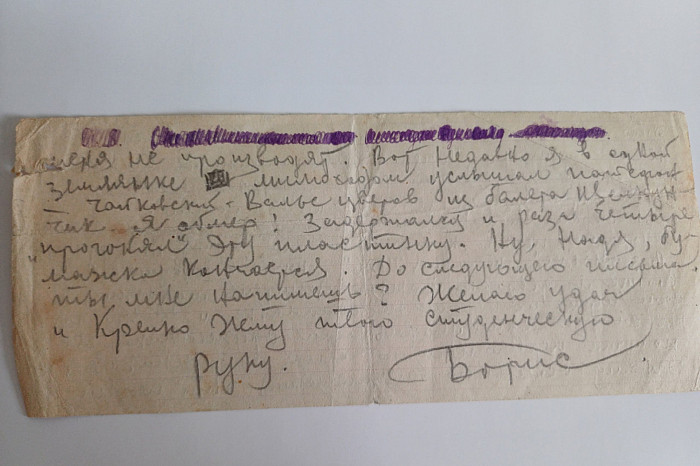 меня не производят. Вот недавно я в одной
землянке мимоходом услышал патефон
– Чайковский – Вальс цветов из балета Щелкун
так я обмер! Задержался и раза четыре
"прогонял" эту пластинку. Ну, Надя, бу-
мажка кончается. До следующего письма.
Ты мне напишешь? Желаю удач
и Крепко Жму твою студенческую
руку. Борис